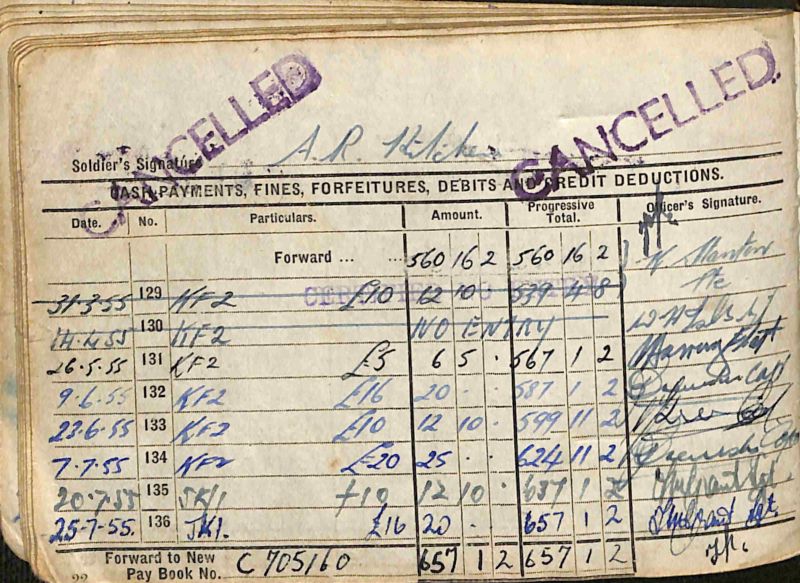 CANCELLED
CANCELLED
Soldier's Signature A. R. Kitchen
CASH PAYMENTS, FINES, FORFEITURES, DEBITS AND CREDIT DEDUCTIONS.
Date. No. Particulars. Amount. Progressive Total. Officer's Signature.
Forward ... ... 560 16 2 560 16 2
31-3-55 129 KF2 £10 12 10 . 539 4 8
14.4.55 130 KF2 NO ENTRY
26-5-55 131 KF2 £5 6 5 . 567 1 2
9-6-55 132 KF2 £16 20 . . 587 1 2
23-6-55 133 KF2 £10 12 10 . 599 11 2
7.7.55 134 KF2 £20 25 . . 624 11 2
20.7.55 135 JK1 £10 12 10 . 637 1 2
25-7-55. 136 JK1. £16 20 . . 657 1 2
Forward to New Pay Book No. C 705160 657 1 2 657 1 2
22